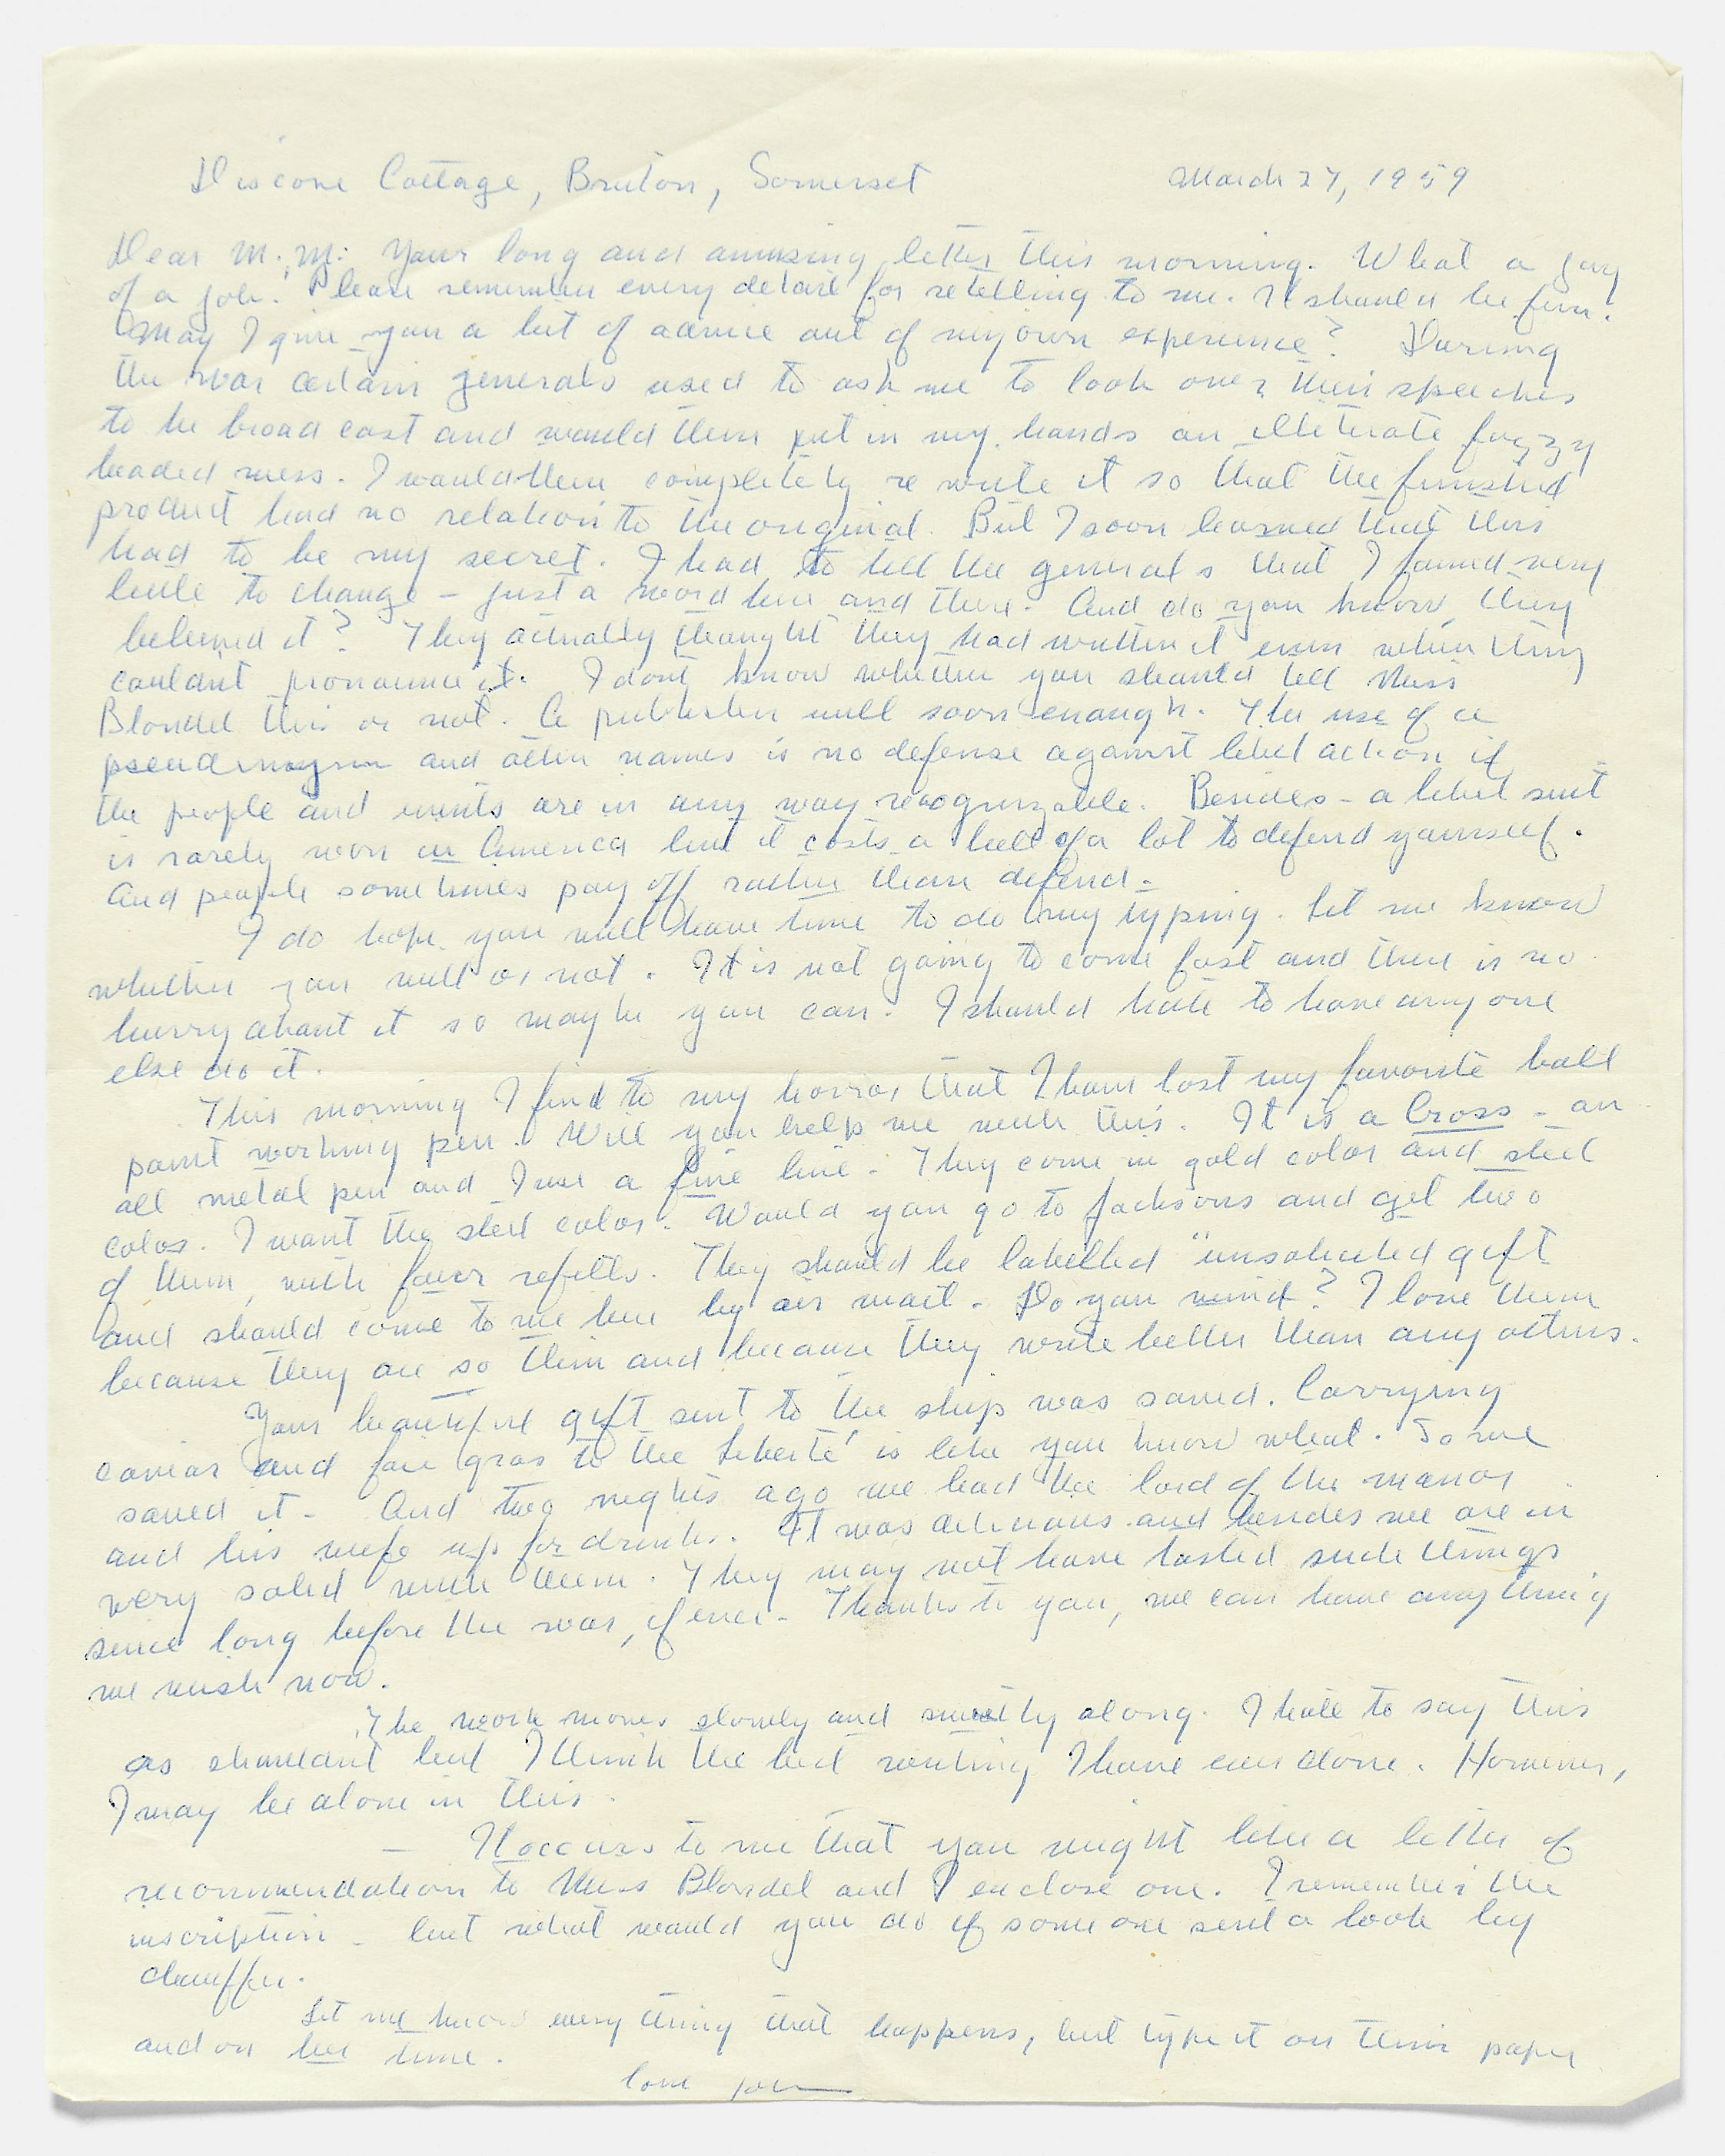 Discove Cottage, Bruton, Somerset March 27, 1959
Dear M.M: Your long and amusing letter this morning. What a joy
of a job. Please remember every detail for retelling to me. It should be fun.
May I give you a bit of advice out of my own experience? During
the war certain generals used to ask me to look over their speeches
to be broad cast and would then put in my hands an illiterate fuzzy
headed mess. I would then completely re write it so that the finished
product had no relation to the original. But I soon learned that this
had to be my secret. I had to tell the generals that I found very
little to change – just a word here and there. And do you know, they
believed it? They actually thought they had written it even when they
couldn't pronounce it. I dont know whether you should tell Miss
Blondel this or not. A publisher will soon enough. The use of a
and other names is no defense against libel action if
the people and events are in any way recognizable. Besides – a libel suit
is rarely won in America but it costs a hell of a lot to defend yourself.
And people sometimes pay off rather than defend –
I do hope you will have time to do my typing. Let me know
whether you will or not. It is not going to come fast and there is no
hurry about it so maybe you can. I should hate to have any one
else do it.
This morning I find to my horror that I have lost my favorite ball
point working pen. Will you help me with this. It is a Cross – an
all metal pen and I use a fine line. They come in gold color and steel
color. I want the steel color. Would you go to Jacksons and get two
of them, with four refills. They should be labelled "unsolicited gift
and should come to me here by air mail. Do you mind? I love them
because they are so thin and because they write better than any others.
Your beautiful gift sent to the ship was saved. Carrying
caviar and foie gras to the Liberté is like you know what. So we
saved it – And two nights ago we had the lord of the manor
and his wife up for drinks. It was delicious and besides we are in
very solid with them. They may not have tasted such things
since long before the war, if ever – Thanks to you, we can have anything
we wish now.
The work moves slowly and along. I hate to say this
as shouldnt but I think the best writing I have ever done. However,
I may be alone in this.
– It occurs to me that you might like a letter of
recommendation to Miss Blondel and I enclose one. I remember the
inscription – but what would you do if some one sent a book by
chauffer.
Let me know every thing that happens, but type it on thin paper
and on her time.
love John